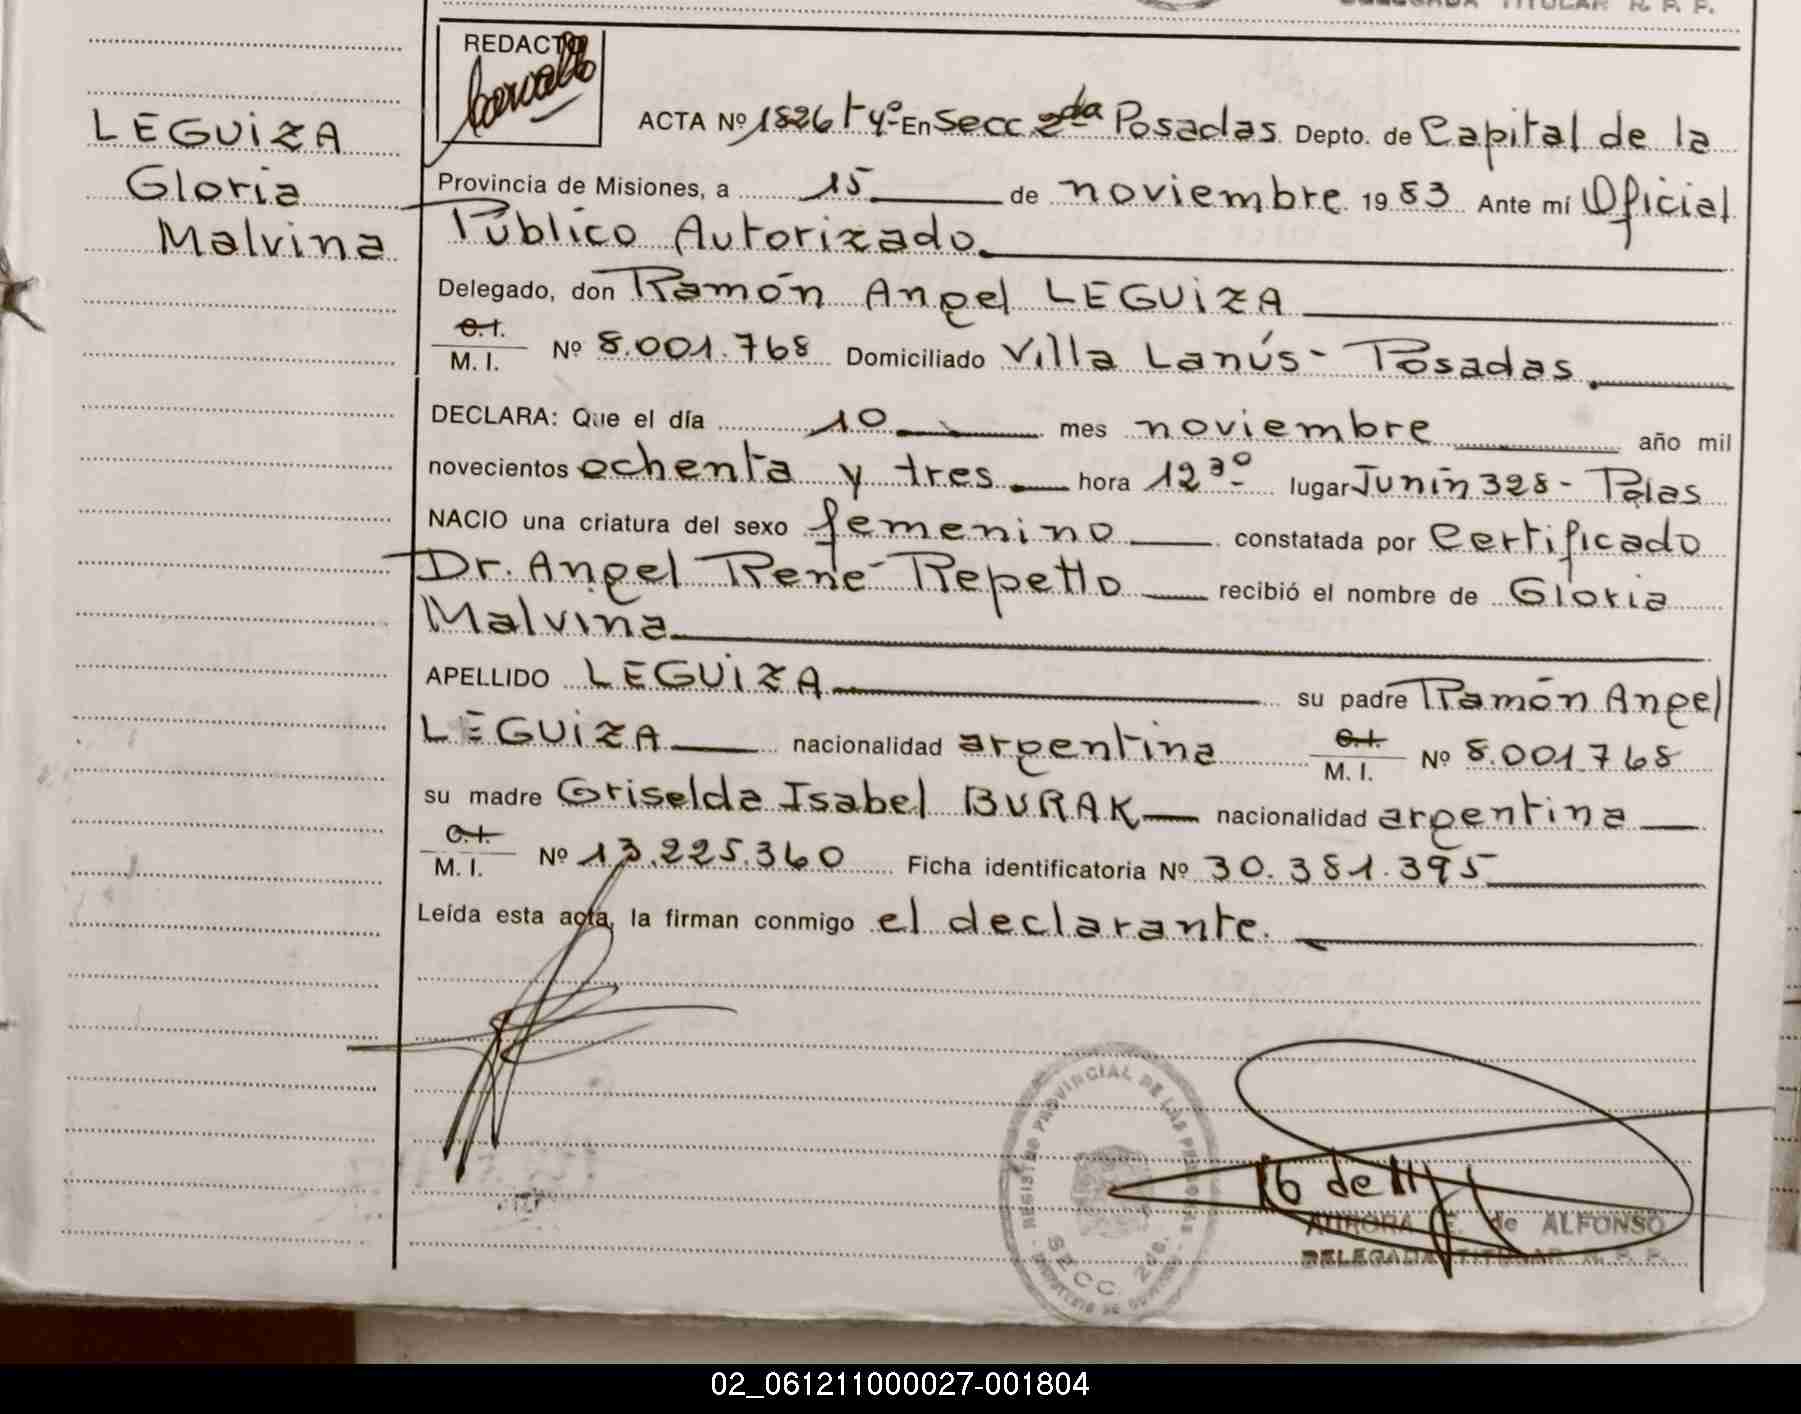 DELEGADA TITULAR R. P. P.
LEGUIZA
Gloria
Malvina
REDACTO
ACTA Nº 1826 tº 4º En Secc. 2da Posadas. Depto. de Capital de la
Provincia de Misiones, a 15 de noviembre 1983 Ante mí Oficial
Público Autorizado.
Delegado, don Ramón Angel LEGUIZA
C.I.
M. I. Nº 8.001.768 Domiciliado Villa Lanús - Posadas.
DECLARA: Que el día 10 mes noviembre año mil
novecientos ochenta y tres hora 12 30 lugar Junín 328 - Pdas
NACIO una criatura del sexo femenino constatada por Certificado
Dr. Angel René Repetto recibió el nombre de Gloria
Malvina
APELLIDO LEGUIZA su padre Ramón Angel
LEGUIZA nacionalidad argentina C.I.
M. I. Nº 8.001.768
su madre Griselda Isabel BURAK nacionalidad argentina
C.I.
M. I. Nº 13.225.360 Ficha identificatoria Nº 30.381.395
Leída esta acta, la firman conmigo el declarante.
REGISTRO PROVINCIAL DE LAS PERSONAS
SECC. 2da.
AURORA E. de ALFONSO
DELEGADA TITULAR R. P. P.
02_061211000027-001804